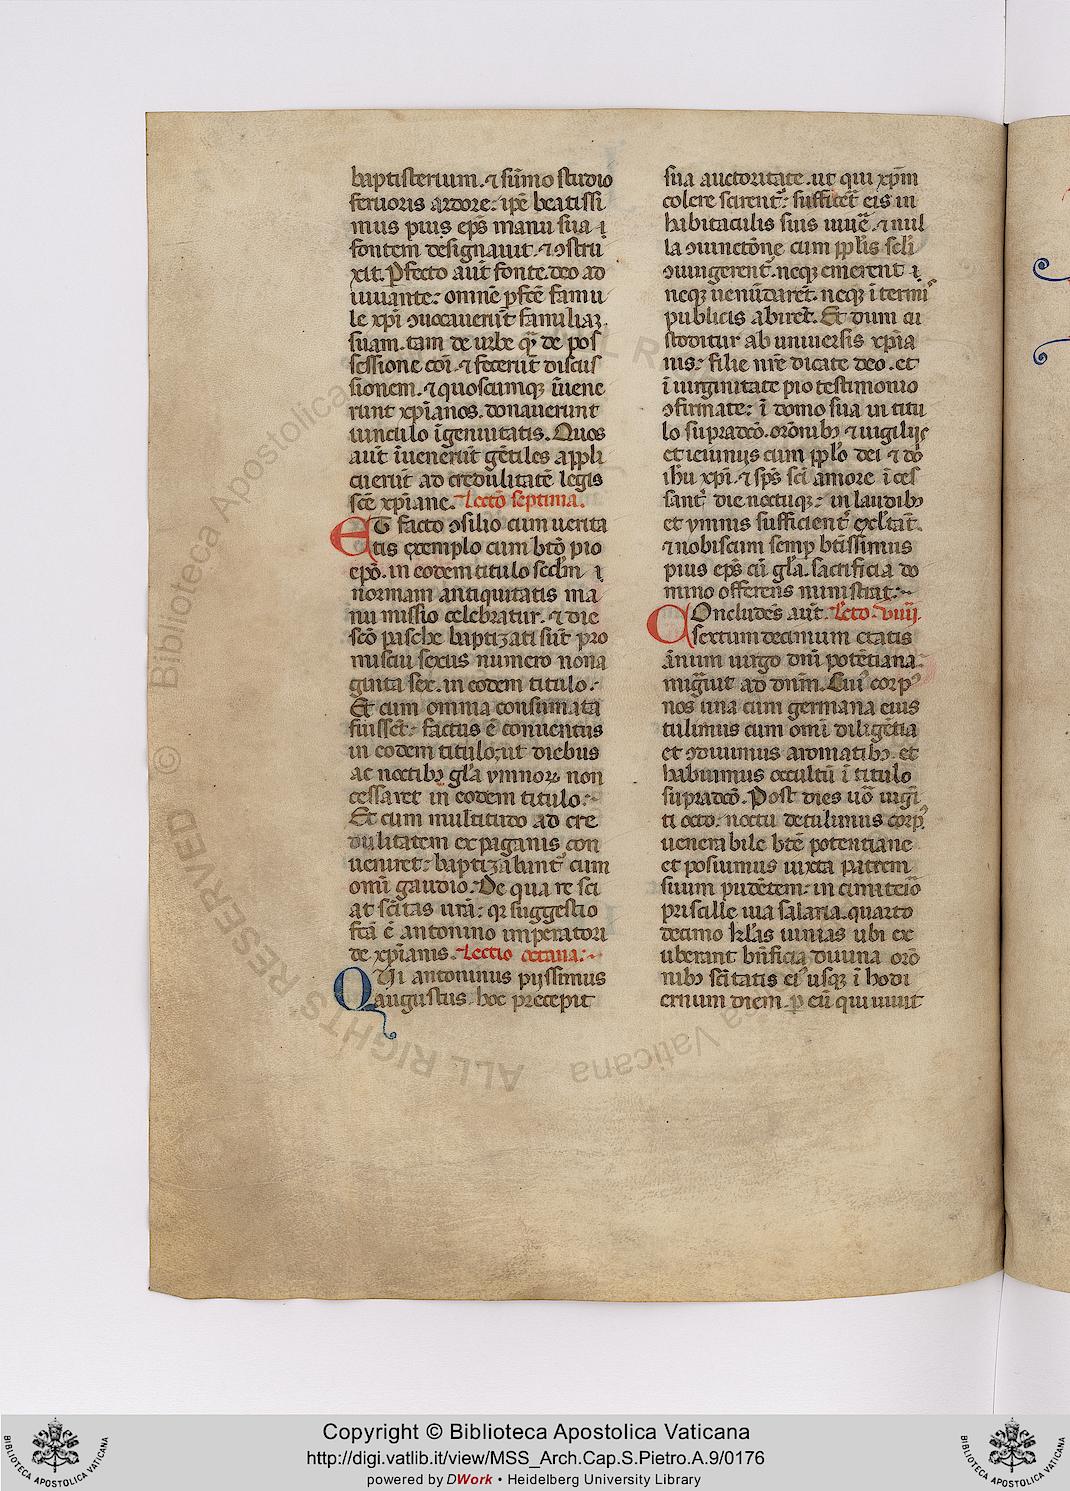 baptisterium. ⁊ sūmo studio
feruoris ardore: ip̄e beatissi
mus pius ep̄s manu sua ī
fontem designauit. ⁊ ɔstru
xit. Ꝑfecto aūt fonte. deo ad
iuuante: omnē ꝓfc̄e famu
le xp̄i ɔuocauerūt familiaꝝ
suam. tam de urbe q̄ de pos
sessione eoꝝ. ⁊ fecerūt discus
sionem. ⁊ quoscumqꝫ īuene
runt xp̄ianos. donauerunt
uinculo īgenuitatis. Quos
aūt īuenerūt gētiles appli
cuerūt ad credulitatē legis
sc̄e xp̄iane. Lectō septima.
ET facto ɔsilio cum uerita
tis exemplo cum btō pio
ep̄o. in eodem titulo scd̄m ī
normam antiquitatis ma
nu missio celebratur. ⁊ die
sc̄o pasche baptizati sūt pro
miscui sexus numero nona
ginta sex. in eodem titulo.
Et cum omnia consumata
fuisset: factus ē conuentus
in eodem titulo; ut diebus
ac noctibꝫ gl̄a ymnoꝝ non
cessaret in eodem titulo.
Et cum multitudo ad cre
dulitatem ex paganis con
ueniret: baptizabant᷑ cum
omī gaudio. De qua re sci
at sc̄itas ur̄a: qꝛ suggestio
fc̄a ē antonino imperatori
de xp̄ianis. Lectio octaua:
QUi antoninus pijssimus
augustus. hoc precepit
sua auctoritate. ut qui xp̄m
colere scirent: sufficēt eis in
habitaculis suis uiuē. ⁊ nul
la ɔiunctōne cum pp̄lis scl̄i
ɔiungerent᷑. neqꝫ emerent ī
neqꝫ uenūdarēt. neqꝫ ī termi
publicis abirēt. Et dum cu
stoditur ab uniuersis xp̄ia
nis: filie nr̄e dicate deo. et
ī uirginitate pio testimonio
ɔfirmate: ī domo sua in titu
lo supradc̄o. orōnibꝫ ⁊ uigilijs
et ieiunijs cum pp̄lo dei ⁊ dō
ih̄u xp̄i. ⁊ sp̄s sc̄i amore īces
sant᷑ die noctuqꝫ: in laudibꝫ
et ymnis sufficient᷑ exl̄tāt.
⁊ nobiscum semꝑ btīssimus
pius ep̄s cū gl̄a. sacrificia do
mino offerens ministrat:
COncludēs aūt. Lc̄to. viiij.
sextumdecimum etatis
ānum uirgo dn̄i potētiana
migᷓuit ad dn̄m. Cui᷒ corp᷒
nos una cum germana eius
tulimus cum omī diligētia
et ɔdiuimus aromatibꝫ. et
habuimus occultū ī titulo
supradcō. Post dies u̾o uigī
ti octo. noctu detulimus corp᷒
uenerabile btē potentiane
et posiumus iuxta patrem
suum pudētem: in cimiteio
priscille uia salaria. quarto
decimo kl̄as iunias ubi ex
uberant bn̄ficia diuina orō
nibꝫ sc̄itatis ei᷒ usqꝫ ī hodi
ernum diem. ꝑ eū qui uiuit
Copyright © Biblioteca Apostolica Vaticana
http://digi.vatlib.it/view/MSS_Arch.Cap.S.Pietro.A.9/0176
powered by DWork • Heidelberg University Library
BIBLIOTECA APOSTOLICA VATICANA
BIBLIOTECA APOSTOLICA VATICANA
© Biblioteca Apostolica Vaticana ALL RIGHTS RESERVED